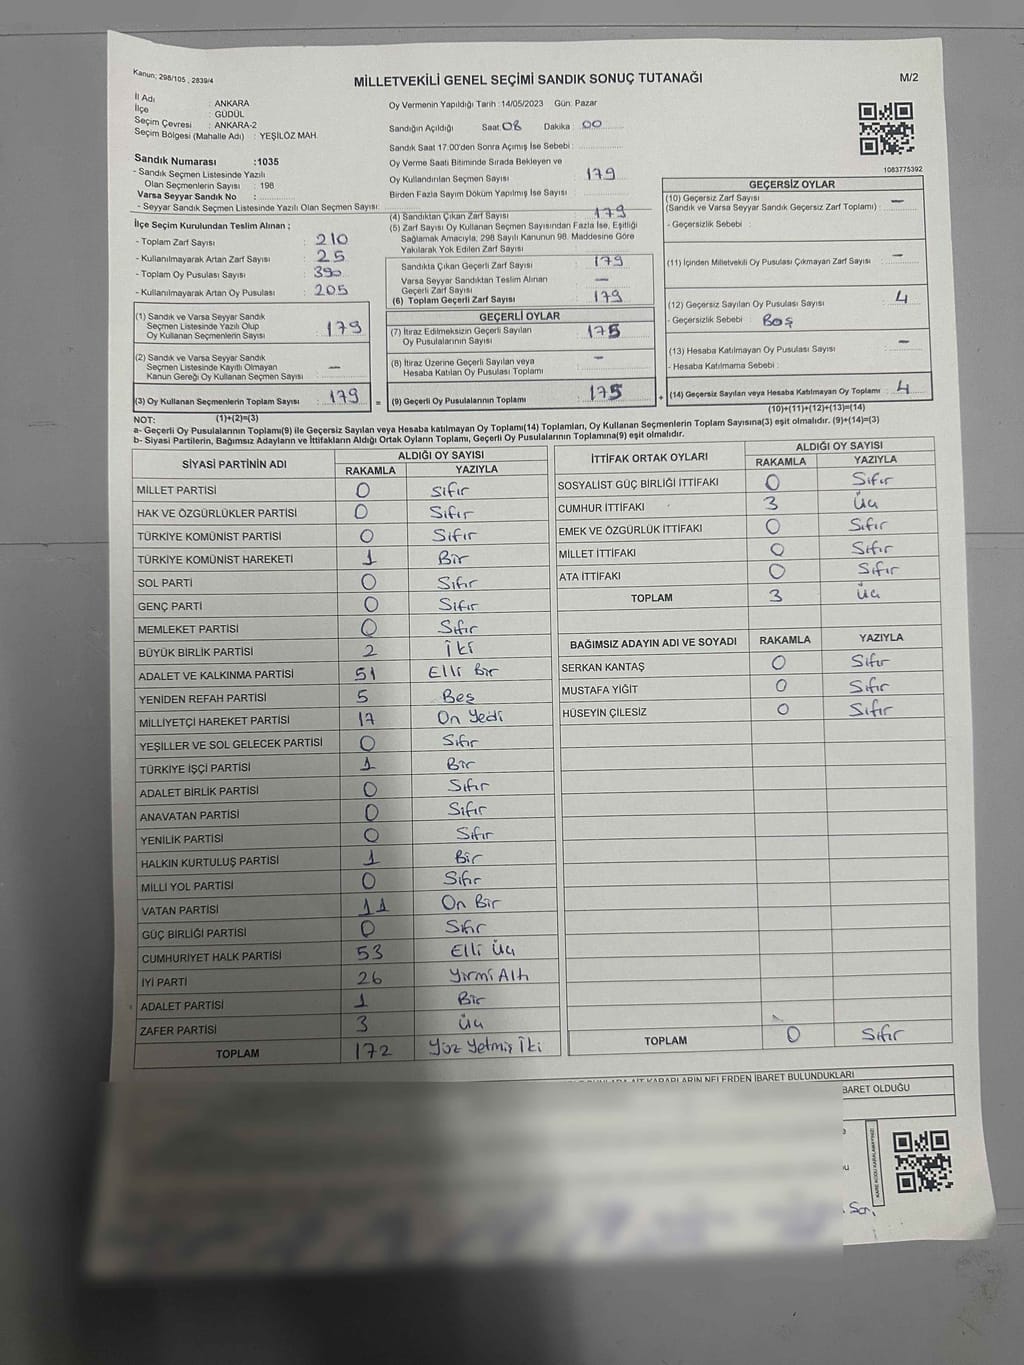 Kanun; 298/105 , 2839/4
MİLLETVEKİLİ GENEL SEÇİMİ SANDIK SONUÇ TUTANAĞI
M/2
İl Adı : ANKARA
İlçe : GÜDÜL
Seçim Çevresi : ANKARA-2
Seçim Bölgesi (Mahalle Adı) : YEŞİLÖZ MAH.
Sandık Numarası :1035
- Sandık Seçmen Listesinde Yazılı
Olan Seçmenlerin Sayısı : 198
Varsa Seyyar Sandık No :
- Seyyar Sandık Seçmen Listesinde Yazılı Olan Seçmen Sayısı:
İlçe Seçim Kurulundan Teslim Alınan ;
- Toplam Zarf Sayısı : 210
- Kullanılmayarak Artan Zarf Sayısı : 25
- Toplam Oy Pusulası Sayısı : 390
- Kullanılmayarak Artan Oy Pusulası : 205
(1) Sandık ve Varsa Seyyar Sandık
Seçmen Listesinde Yazılı Olup
Oy Kullanan Seçmenlerin Sayısı : 179
(2) Sandık ve Varsa Seyyar Sandık
Seçmen Listesinde Kayıtlı Olmayan
Kanun Gereği Oy Kullanan Seçmen Sayısı : —
(3) Oy Kullanan Seçmenlerin Toplam Sayısı : 179
(1)+(2)=(3)
Oy Vermenin Yapıldığı Tarih :14/05/2023 Gün: Pazar
Sandığın Açıldığı Saat: 08 Dakika : 00
Sandık Saat 17:00'den Sonra Açımış İse Sebebi :
Oy Verme Saati Bitiminde Sırada Bekleyen ve
Oy Kullandırılan Seçmen Sayısı : 179
Birden Fazla Sayım Döküm Yapılmış İse Sayısı :
(4) Sandıktan Çıkan Zarf Sayısı : 179
(5) Zarf Sayısı Oy Kullanan Seçmen Sayısından Fazla İse, Eşitliği
Sağlamak Amacıyla, 298 Sayılı Kanunun 98. Maddesine Göre
Yakılarak Yok Edilen Zarf Sayısı :
Sandıkta Çıkan Geçerli Zarf Sayısı : 179
Varsa Seyyar Sandıktan Teslim Alınan
Geçerli Zarf Sayısı : —
(6) Toplam Geçerli Zarf Sayısı : 179
GEÇERLİ OYLAR
(7) İtiraz Edilmeksizin Geçerli Sayılan
Oy Pusulalarının Sayısı : 175
(8) İtiraz Üzerine Geçerli Sayılan veya
Hesaba Katılan Oy Pusulası Toplamı : —
= (9) Geçerli Oy Pusulalarının Toplamı : 175
1083775392
GEÇERSİZ OYLAR
(10) Geçersiz Zarf Sayısı
(Sandık ve Varsa Seyyar Sandık Geçersiz Zarf Toplamı) : —
- Geçersizlik Sebebi :
(11) İçinden Milletvekili Oy Pusulası Çıkmayan Zarf Sayısı : —
(12) Geçersiz Sayılan Oy Pusulası Sayısı : 4
- Geçersizlik Sebebi : Boş
(13) Hesaba Katılmayan Oy Pusulası Sayısı : —
- Hesaba Katılmama Sebebi :
+ (14) Geçersiz Sayılan veya Hesaba Katılmayan Oy Toplamı : 4
(10)+(11)+(12)+(13)=(14)
NOT:
a- Geçerli Oy Pusulalarının Toplamı(9) ile Geçersiz Sayılan veya Hesaba katılmayan Oy Toplamı(14) Toplamları, Oy Kullanan Seçmenlerin Toplam Sayısına(3) eşit olmalıdır. (9)+(14)=(3)
b- Siyasi Partilerin, Bağımsız Adayların ve İttifakların Aldığı Ortak Oyların Toplamı, Geçerli Oy Pusulalarının Toplamına(9) eşit olmalıdır.
SİYASİ PARTİNİN ADI ALDIĞI OY SAYISI
RAKAMLA YAZIYLA
MİLLET PARTİSİ 0 Sıfır
HAK VE ÖZGÜRLÜKLER PARTİSİ 0 Sıfır
TÜRKİYE KOMÜNİST PARTİSİ 0 Sıfır
TÜRKİYE KOMÜNİST HAREKETİ 1 Bir
SOL PARTİ 0 Sıfır
GENÇ PARTİ 0 Sıfır
MEMLEKET PARTİSİ 0 Sıfır
BÜYÜK BİRLİK PARTİSİ 2 İki
ADALET VE KALKINMA PARTİSİ 51 Elli Bir
YENİDEN REFAH PARTİSİ 5 Beş
MİLLİYETÇİ HAREKET PARTİSİ 17 On Yedi
YEŞİLLER VE SOL GELECEK PARTİSİ 0 Sıfır
TÜRKİYE İŞÇİ PARTİSİ 1 Bir
ADALET BİRLİK PARTİSİ 0 Sıfır
ANAVATAN PARTİSİ 0 Sıfır
YENİLİK PARTİSİ 0 Sıfır
HALKIN KURTULUŞ PARTİSİ 1 Bir
MİLLİ YOL PARTİSİ 0 Sıfır
VATAN PARTİSİ 11 On Bir
GÜÇ BİRLİĞİ PARTİSİ 0 Sıfır
CUMHURİYET HALK PARTİSİ 53 Elli Üç
İYİ PARTİ 26 Yirmi Altı
ADALET PARTİSİ 1 Bir
ZAFER PARTİSİ 3 Üç
TOPLAM 172 Yüz Yetmiş İki
İTTİFAK ORTAK OYLARI ALDIĞI OY SAYISI
RAKAMLA YAZIYLA
SOSYALİST GÜÇ BİRLİĞİ İTTİFAKI 0 Sıfır
CUMHUR İTTİFAKI 3 Üç
EMEK VE ÖZGÜRLÜK İTTİFAKI 0 Sıfır
MİLLET İTTİFAKI 0 Sıfır
ATA İTTİFAKI 0 Sıfır
TOPLAM 3 Üç
BAĞIMSIZ ADAYIN ADI VE SOYADI RAKAMLA YAZIYLA
SERKAN KANTAŞ 0 Sıfır
MUSTAFA YİĞİT 0 Sıfır
HÜSEYİN ÇİLESİZ 0 Sıfır
TOPLAM 0 Sıfır
KARARLARIN NELERDEN İBARET BULUNDUKLARI
BARET OLDUĞU